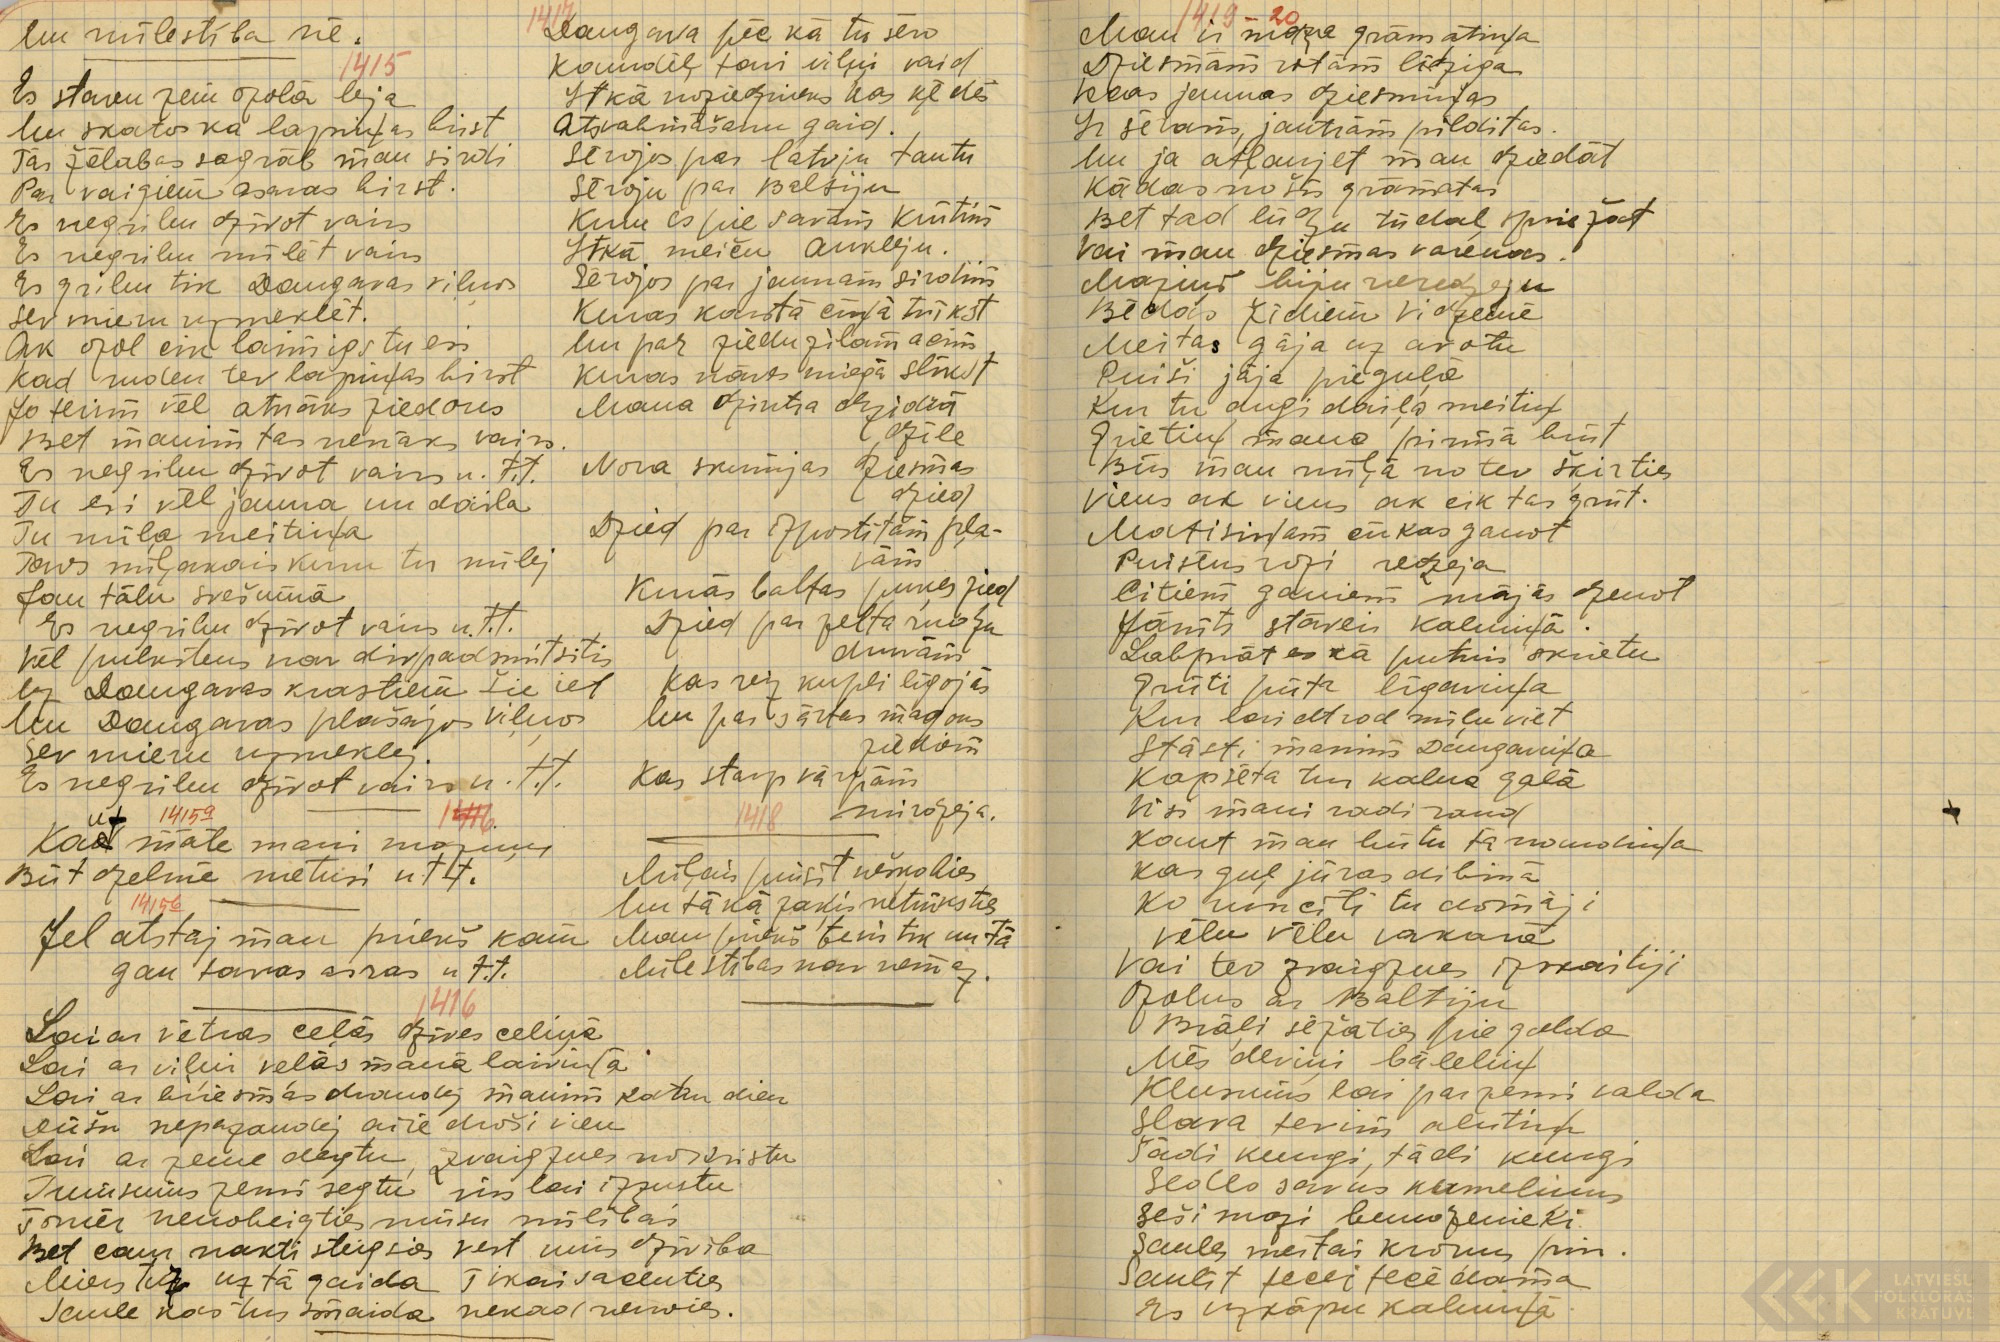 Un mīlestība nē.
1415
Es stavu zem ozola leja
Un skatos kā lapiņas birst
Tās žēlabas sagrāb man sirdi
Par vaigiem asaras birst.
Es negribu dzīvot vairs
Es negribu mīlēt vairs
Es gribu tik Daugavas viļņos
Sev mieru uzmeklēt.
Ak ozol cik laimīgs tu esi
Kad ruden tev lapiņas birst
Jo tevim vēl atnāks ziedons
Bet manim tas nenāks vairs.
Es negribu dzīvot vairs u.t.t.
Tu esi vēl jauna un daiļa
Tu mīļa meitiņa
Tavs mīļakais kuru tu mīlej
Jau tālu svešumā
Es negribu dzīvot vairs u.t.t.
Vēl pulkstens nav divpadsmit sitis
Uz Daugavas krastiem šie iet
Un Daugavas plašajos viļņos
Sev mieru uzmeklej.
Es negribu dzīvot vairs u.t.t.
1415a
Kaut māte mani mazu
Būt dzelmē metusi u t.t.
1415b
Žel atstāj man priekš kam
gan tavas asras u t.t.
1416
Lai ar vētras celās dzīves celiņā
Lai ar viļņi velās manā laiviņā
Lai ar briesmas draudēj manim katru dien
Mūsu nepazaudēj airē droši vien
Lai ar zeme degtu, zvaigznes noskristu
Tumsums zemi segtu viss lai izzustu
Tomēr nenobeigties mūsu mīlībās
Bet caur nakti steigsies vest mūs dzīvība
Miers tik uz tā gaida Tikai saderēties
Saule kas tur smaida nekad nerimies.
1417
Daugava pēc kā tu sēro
Kamdēļ tavi viļņi vaid
It kā noziedznieks kas ķēdēs
Atsvabināšanu gaid.
Sērojos par latvju tautu
Sēroju par Baltiju
Kuru es pie savām krūtīm
Itkā meiču aukleju.
Sērojos par jaunām sirdīm
Kuras karstā cīņā tūkst
Un par ziedu zilam acim
Kuras nāves miegā slīkst
Mana dzintra dzidrā
dzīle
Nova skumjas dziesmas
dzied
Dzied par izpostītām pļa-
vām
Kurās baltas puķes zied
Dzied par zelta rudzu
druvām
Kas reiz kupli līgojās
Un par sārtas magons
ziediem
Kas starp vārpām
mirdzeja.
1418
Mīļais puisīt neskabies
Un tā kā zaķis netrūksties
Man priekš tevis tik un tā
Mīlestības nav nemaz.
1419-20
Man ir maza grāmatiņa
Dziesmām rotām līdzīga
Viņas jaunas dziesmiņas
Ir sērām, jautrām pildītas.
Un ja atļaujet man dziedāt
Kādas no šīs grāmatas
Bet tad lūdzu tūdaļ spriežat
Vai man dziesmas varenas.
Maziņš biju neredzeju
Bēdās žīdiem Vidzemē
Meitas gāja uz avotu
Puiši jāja piegulā
Kur tu augi daiļā meitiņ
Grietiņ mana pirmā būt
Būs man mīļā no tev šķirties
Viens ak viens ak cik tas grūt.
Matisiņam cūkas ganot
Puisēns rozi redzeja
Citiem ganiem mājās dzenot
Jānīts stāveis kalniņā.
Labprāt es kā putnis skrietu
Grūti pūta līgaviņa
Kur lai atrod mīļu viet
Stāsti manim Daugaviņa
Kapsēta tur kalna galā
Visi mani radi raud
Kaut man būtu tā naudiņa
Kas guļ jūras dibinā
Ko runcīti tu domāji
Vēlu vēlu vakarā
Vai tev zvaigznes izskaitiji
Ozolus ar Baltiju
Brāļi sēžaties pie galda
Mēs deviņi bāleliņ
Klusums lai par zemi valda
Slava tevim alutiņ
Tādi kungi, tādi kungi
Sedlo savus kumeliņus
Seši mazi bundzenieki
Saules meitas kroņus pin.
Saulīt tecēj tecēdama
Es uzkāpu kalniņā
LATVIEŠU
FOLKLORAS
KRĀTUVE